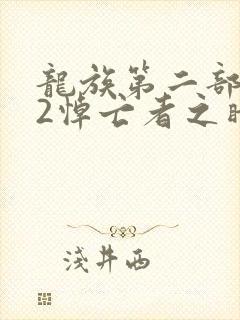 龍族第二部
2悼亡者之
淺井西